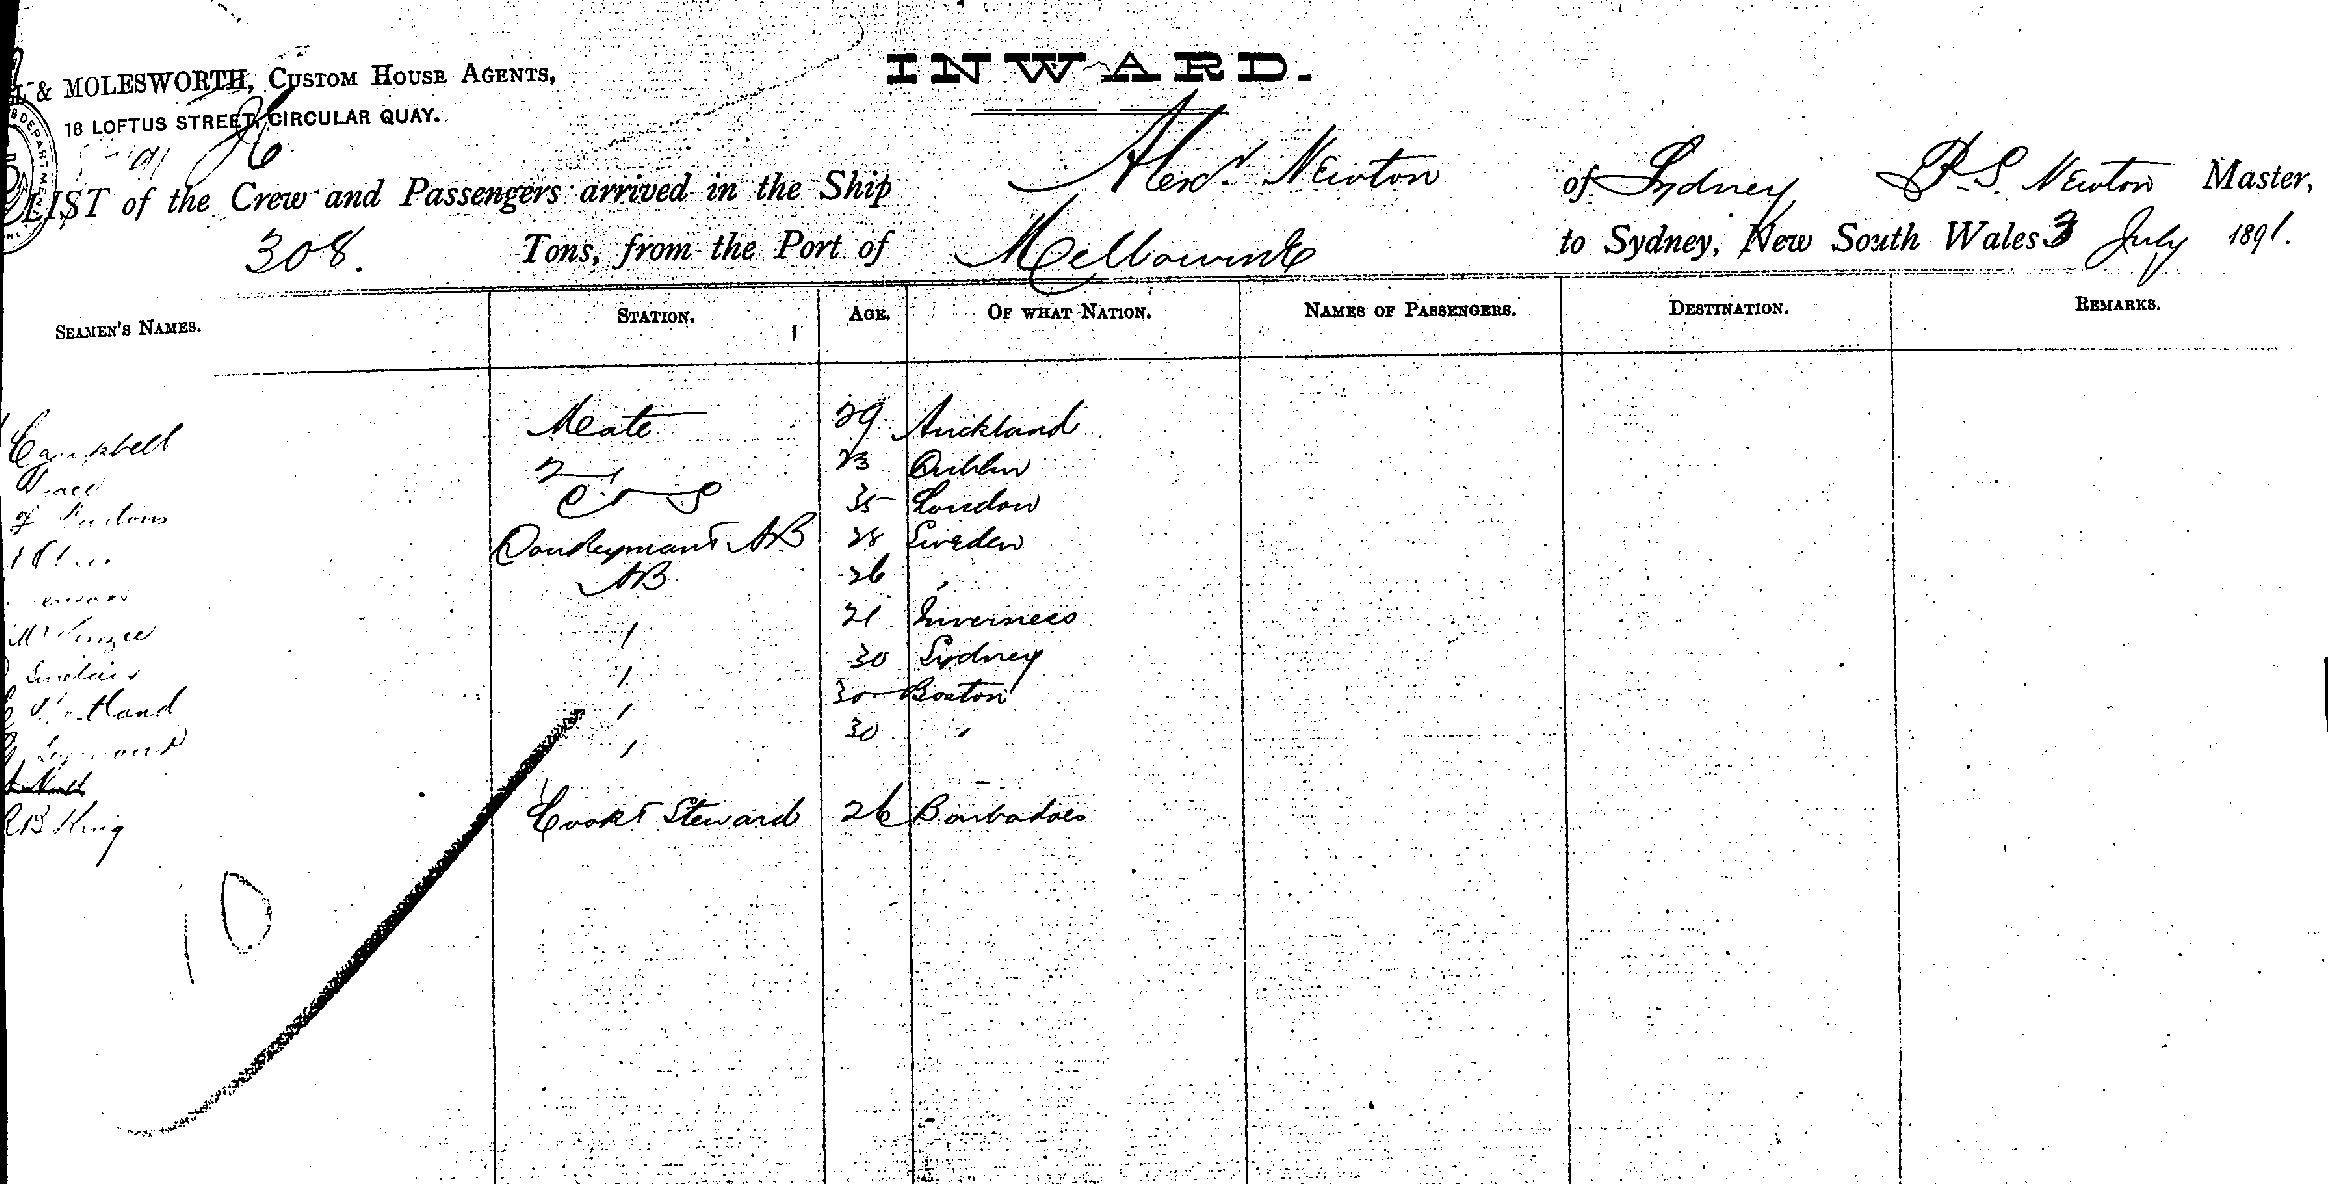 & MOLESWORTH, CUSTOM HOUSE AGENTS,
18 LOFTUS STREET, CIRCULAR QUAY.
INWARD.
LIST of the Crew and Passengers arrived in the Ship Alexr. Newton of Sydney P. S. Newton Master,
308. Tons, from the Port of Melbourne to Sydney, New South Wales 3 July 1891.
SEAMEN'S NAMES. STATION. AGE. OF WHAT NATION. NAMES OF PASSENGERS. DESTINATION. REMARKS.
Campbell Mate 29 Auckland
2 23 Dublin
35 London
Donkeyman & AB 28 Sweden
AB 26 "
McKenzie " 21 Inverness
Sinclair " 30 Sydney
" 30 Boston
" 30 "
King Cook & Steward 26 Barbadoes
10